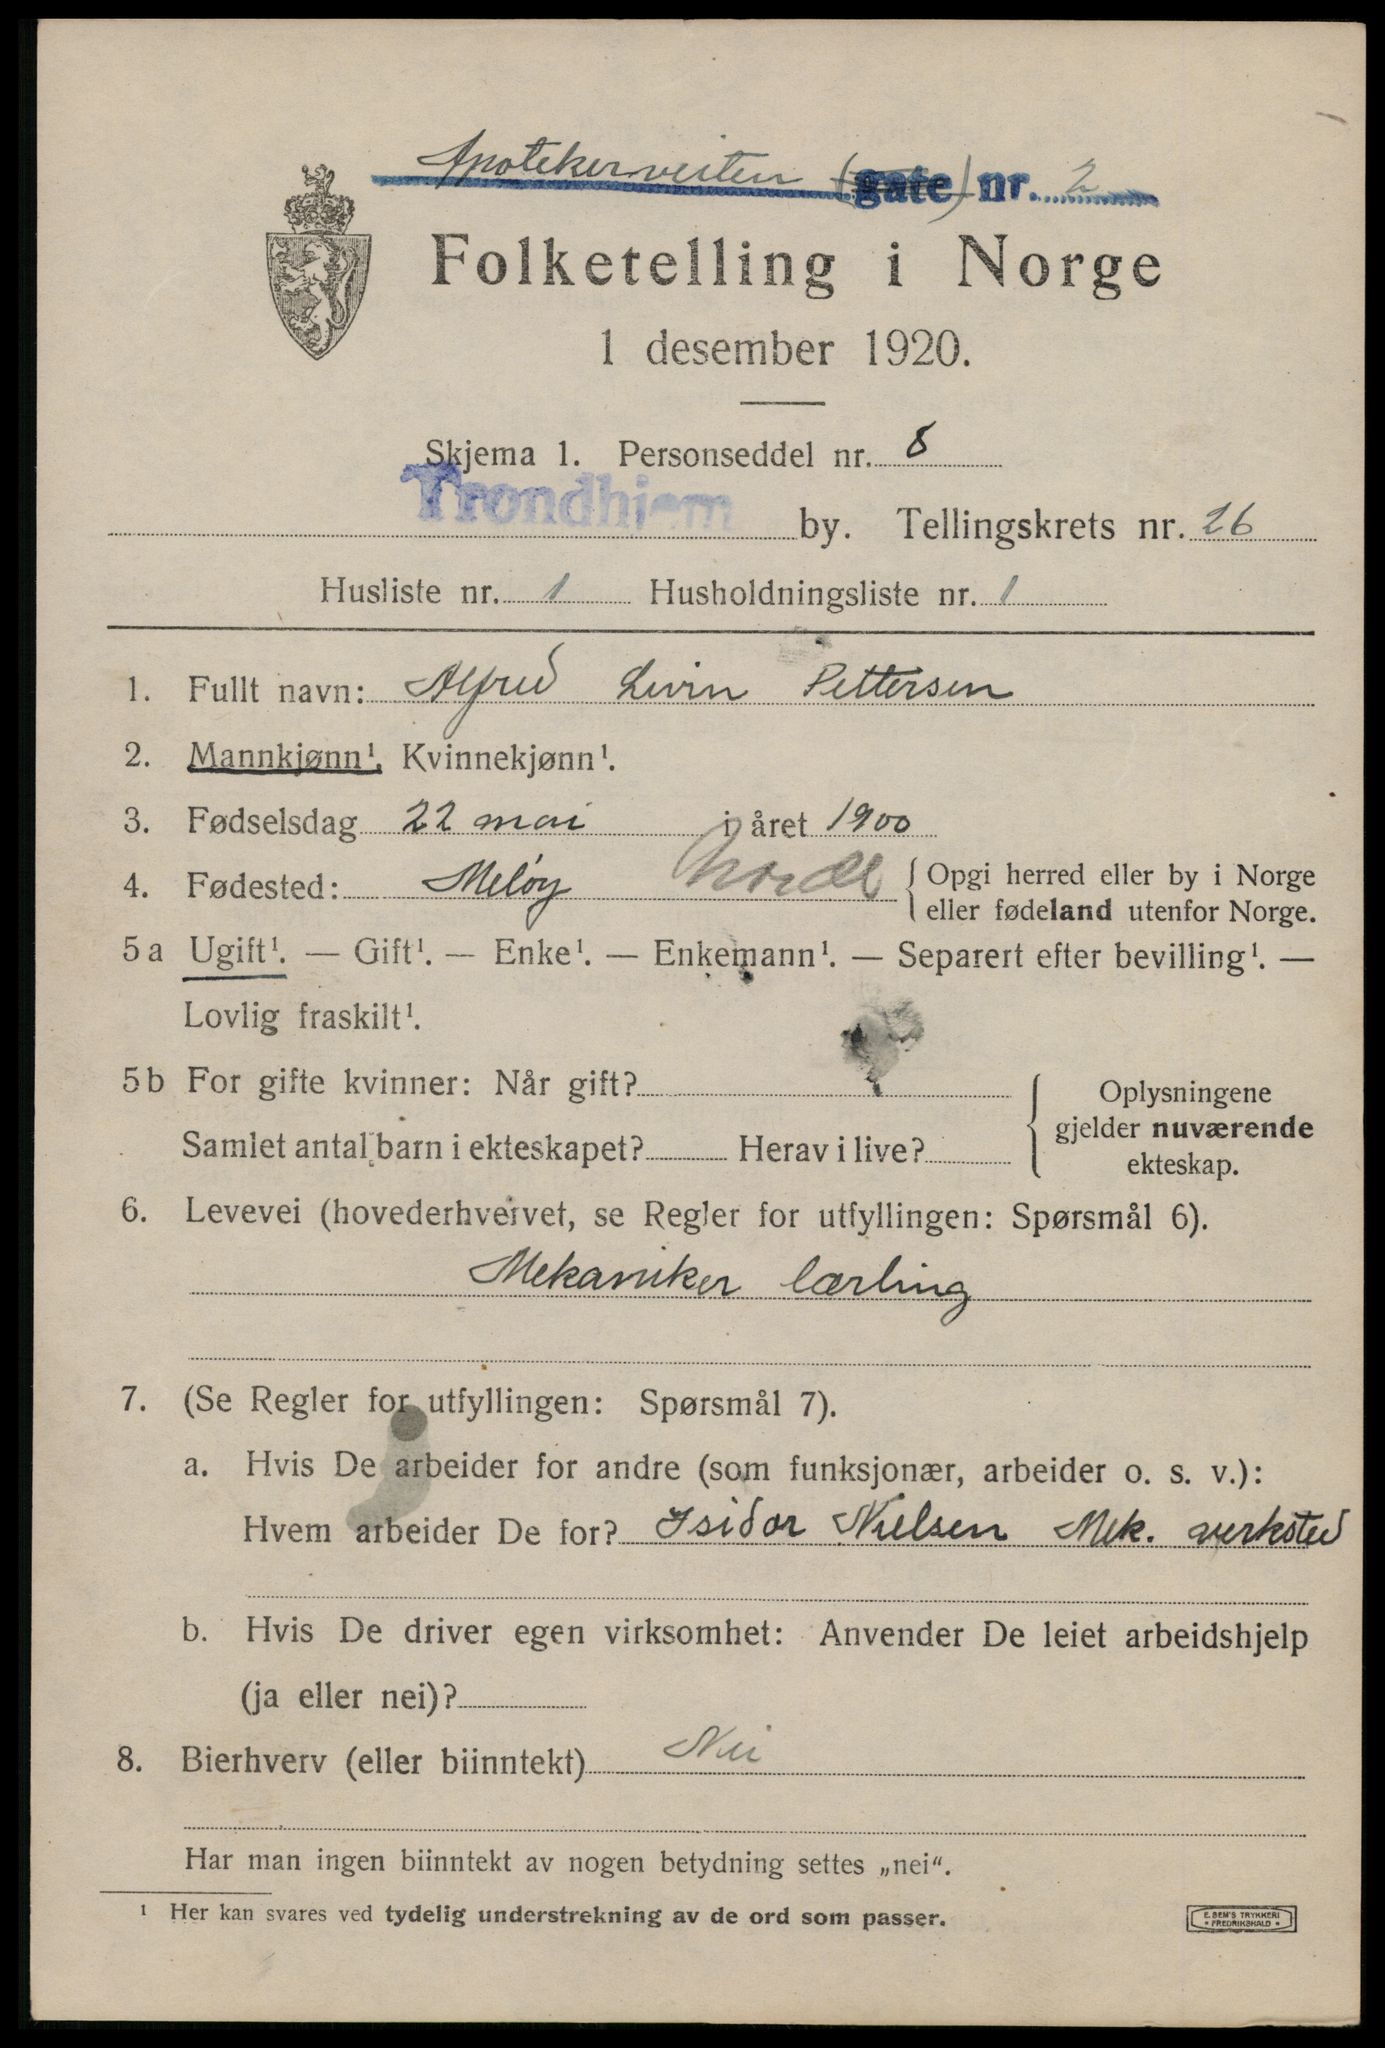 Apotekerveiten (gate) nr. 2
Folketelling i Norge
1 desember 1920.
Skjema 1. Personseddel nr. 8
Trondhjem by. Tellingskrets nr. 26
Husliste nr. 1 Husholdningsliste nr. 1
1. Fullt navn: Alfred Livin Pettersen
2. Mannkjønn¹. Kvinnekjønn¹.
3. Fødselsdag 22 mai i året 1900
4. Fødested: Meløy Nordl { Opgi herred eller by i Norge
eller fødeland utenfor Norge.
5a Ugift¹. — Gift¹. — Enke¹. — Enkemann¹. — Separert efter bevilling¹. —
Lovlig fraskilt¹.
5b For gifte kvinner: Når gift?
Samlet antal barn i ekteskapet? Herav i live?
Oplysningene
gjelder nuværende
ekteskap.
6. Levevei (hovederhvervet, se Regler for utfyllingen: Spørsmål 6).
Mekaniker lærling
7. (Se Regler for utfyllingen: Spørsmål 7).
a. Hvis De arbeider for andre (som funksjonær, arbeider o. s. v.):
Hvem arbeider De for? Isidor Nielsen Mek. verksted
b. Hvis De driver egen virksomhet: Anvender De leiet arbeidshjelp
(ja eller nei)?
8. Bierhverv (eller biinntekt) Nei
Har man ingen biinntekt av nogen betydning settes „nei“.
¹ Her kan svares ved tydelig understrekning av de ord som passer.
E. SEM'S TRYKKERI
• FREDRIKSHALD •